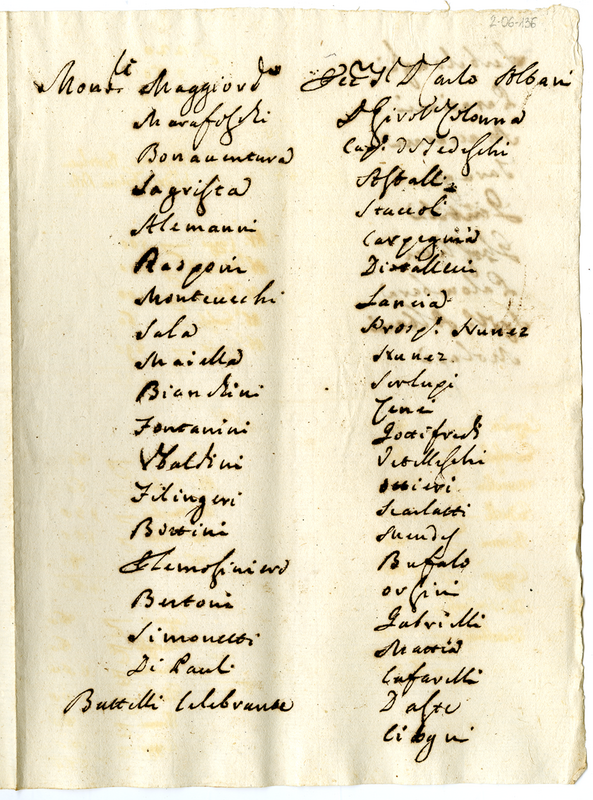 2-06-136
Mons.ri Maggiordo
Marafoschi
Bonaventura
Sagrista
Alemanni
Rasponi
Montecucchi
Sala
Maiella
Bianchini
Fontanini
Vbaldini
Filingeri
Bottini
Elemosiniero
Bentoni
Simonetti
Di Pauli
Battelli Celebrante
D Carlo Albani
D Girol Colonna
Cap. de Tedeschi
Astalli
Staccoli
Carpegnia
Lancia
Prosp. Nunez
Nunez
Serlupi
Cenci
Gottifredi
Vitelleschi
Ottieri
Scarlatti
Bufalo
Orsini
Gabrielli
Mattia
Cafarelli
D aste
Cibo